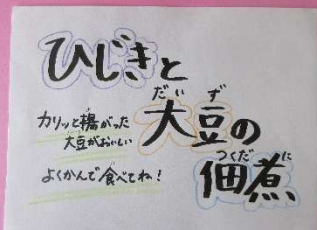 ひじきと
だいず
大豆の
つくだに
佃煮
カリッと揚がった
大豆がおいしい
よくかんで食べてね！